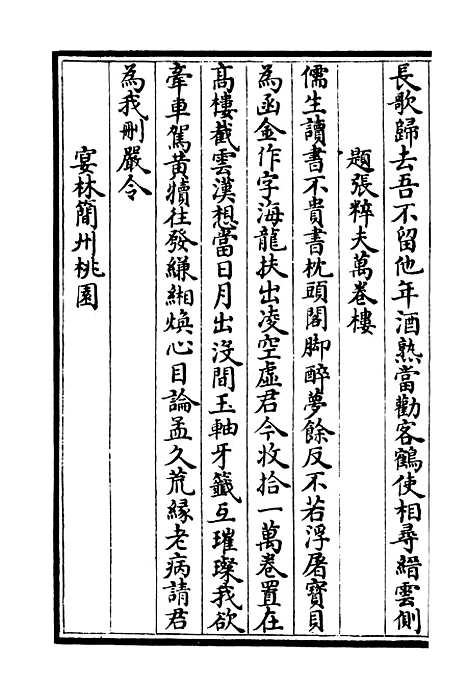 長歌歸去吾不留他年酒熟當勸客鶴使相尋縉雲側
題張粹夫萬卷樓
儒生讀書不貴書枕頭閣脚醉夢餘反不若浮屠寳貝
為函金作字海龍扶出凌空虛君今收拾一萬卷置在
髙樓截雲漢想當日月出没間玉軸牙籤互璀璨我欲
牽車駕黄犢往發縑緗煥心目論孟久荒縁老病請君
為我刪嚴令
宴林簡州桃園